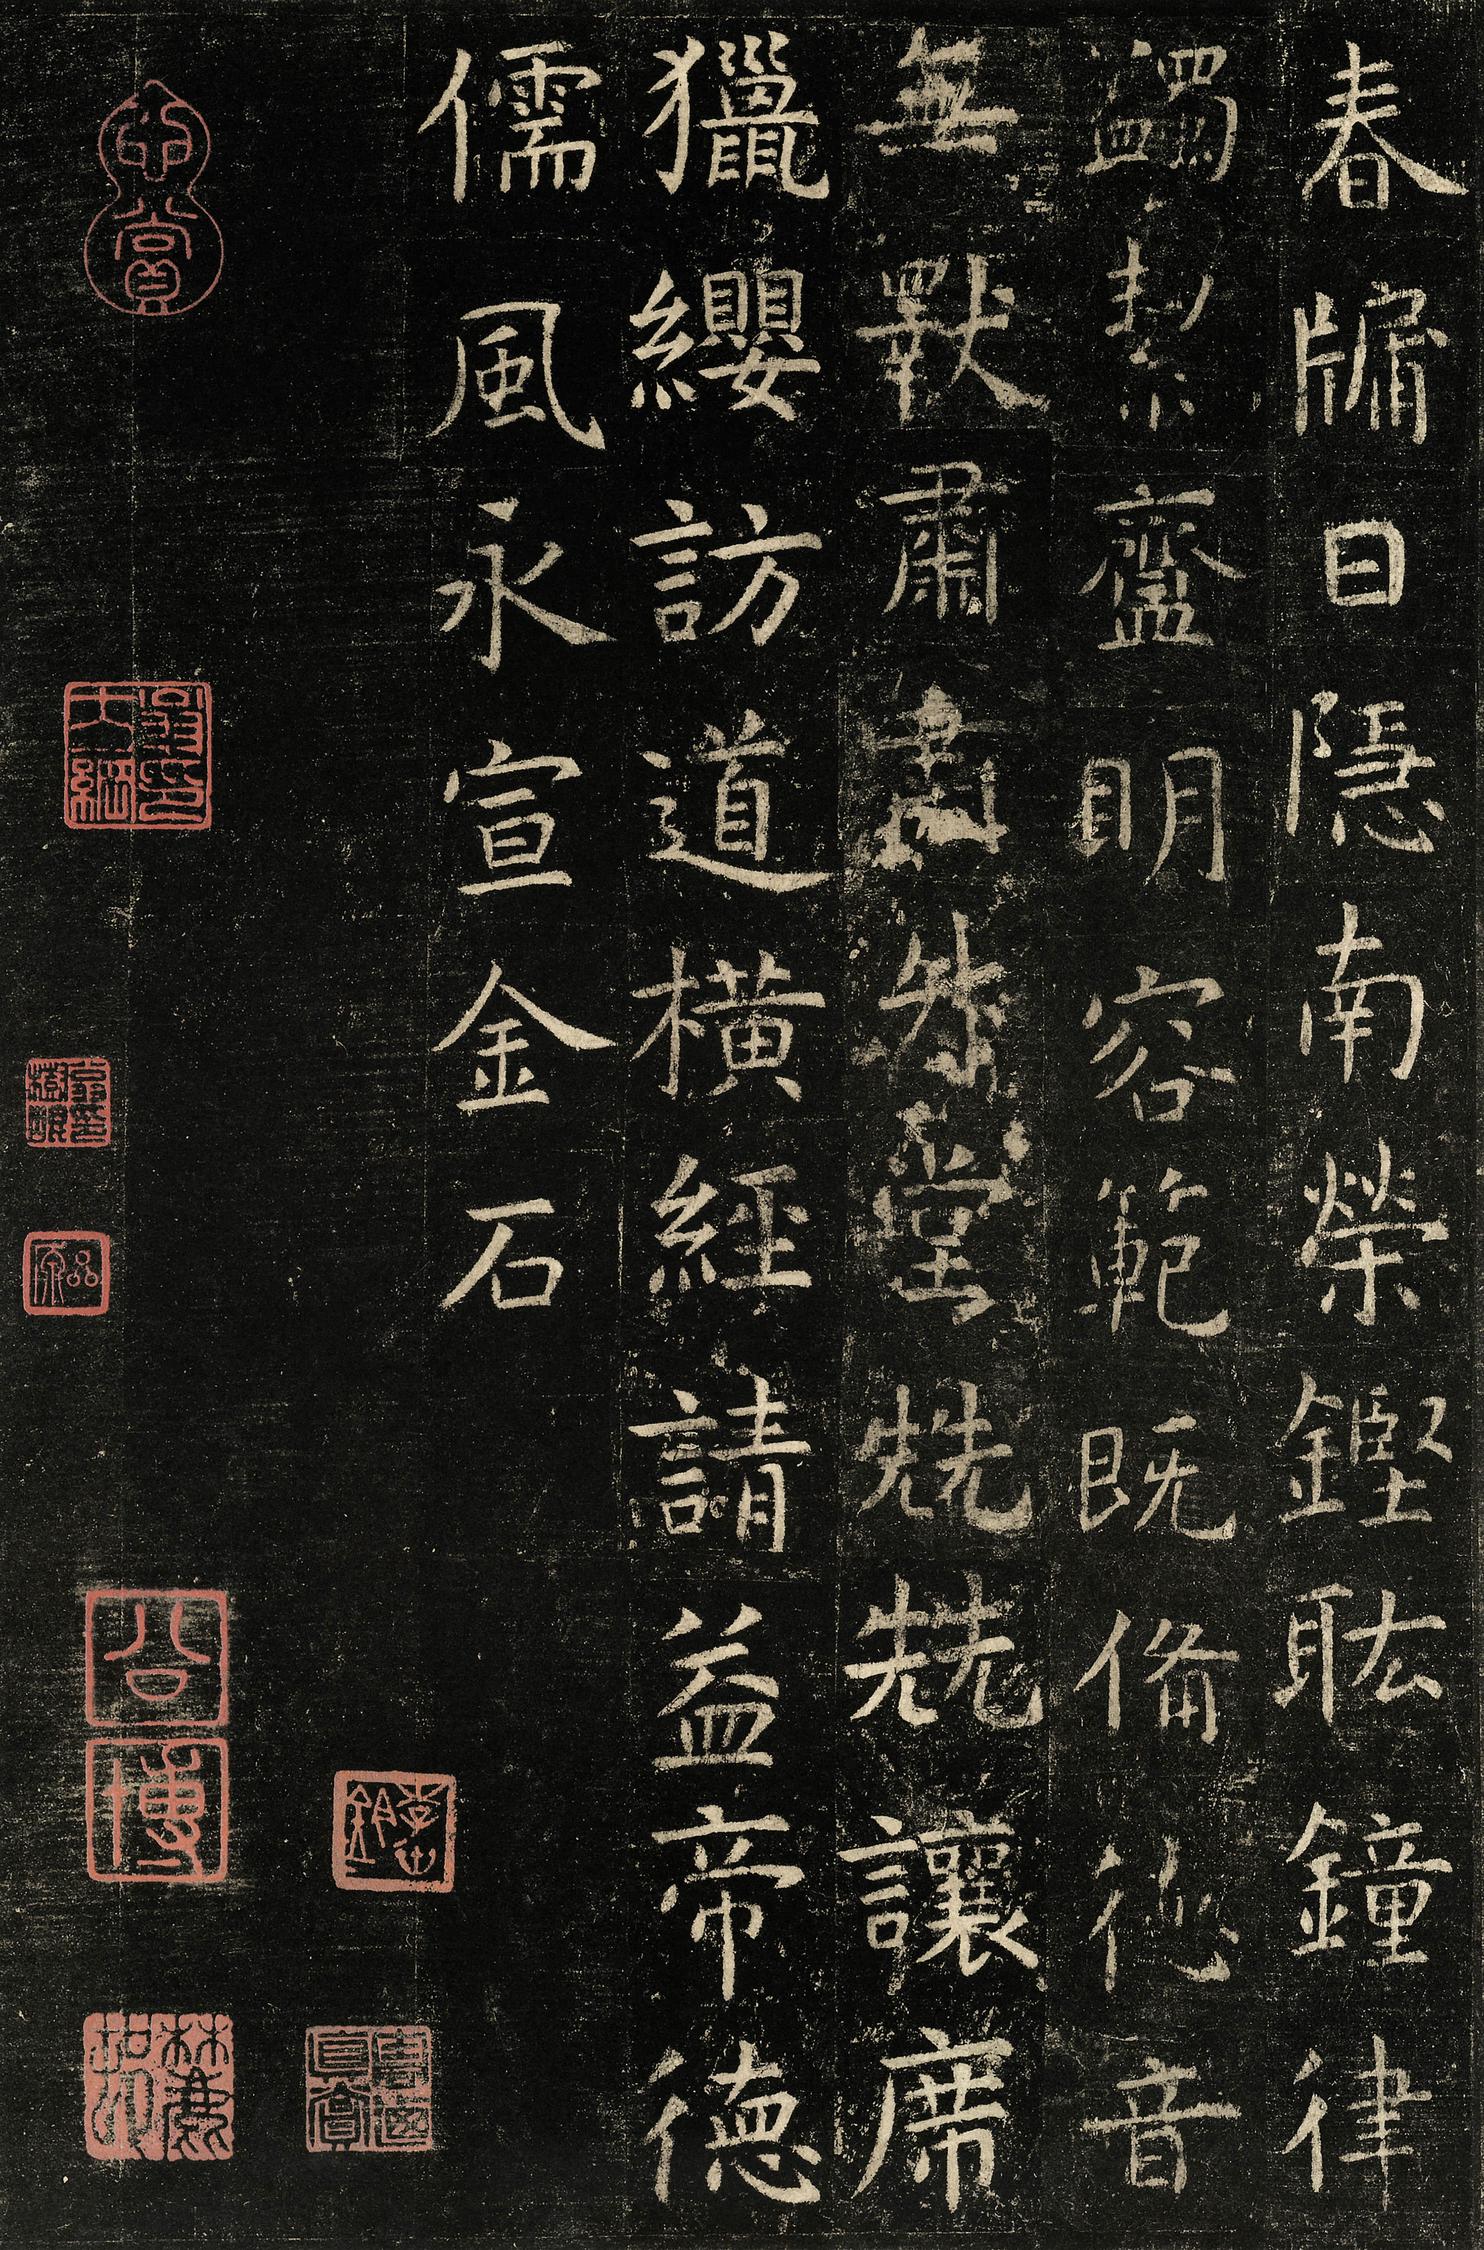 春牖日隱南榮鏗耾鐘律
蠲絜齍眀容範既備德音
無斁肅肅升堂兟兟讓席
獵纓訪道橫經請益帝德
儒風永宣金石
公
博